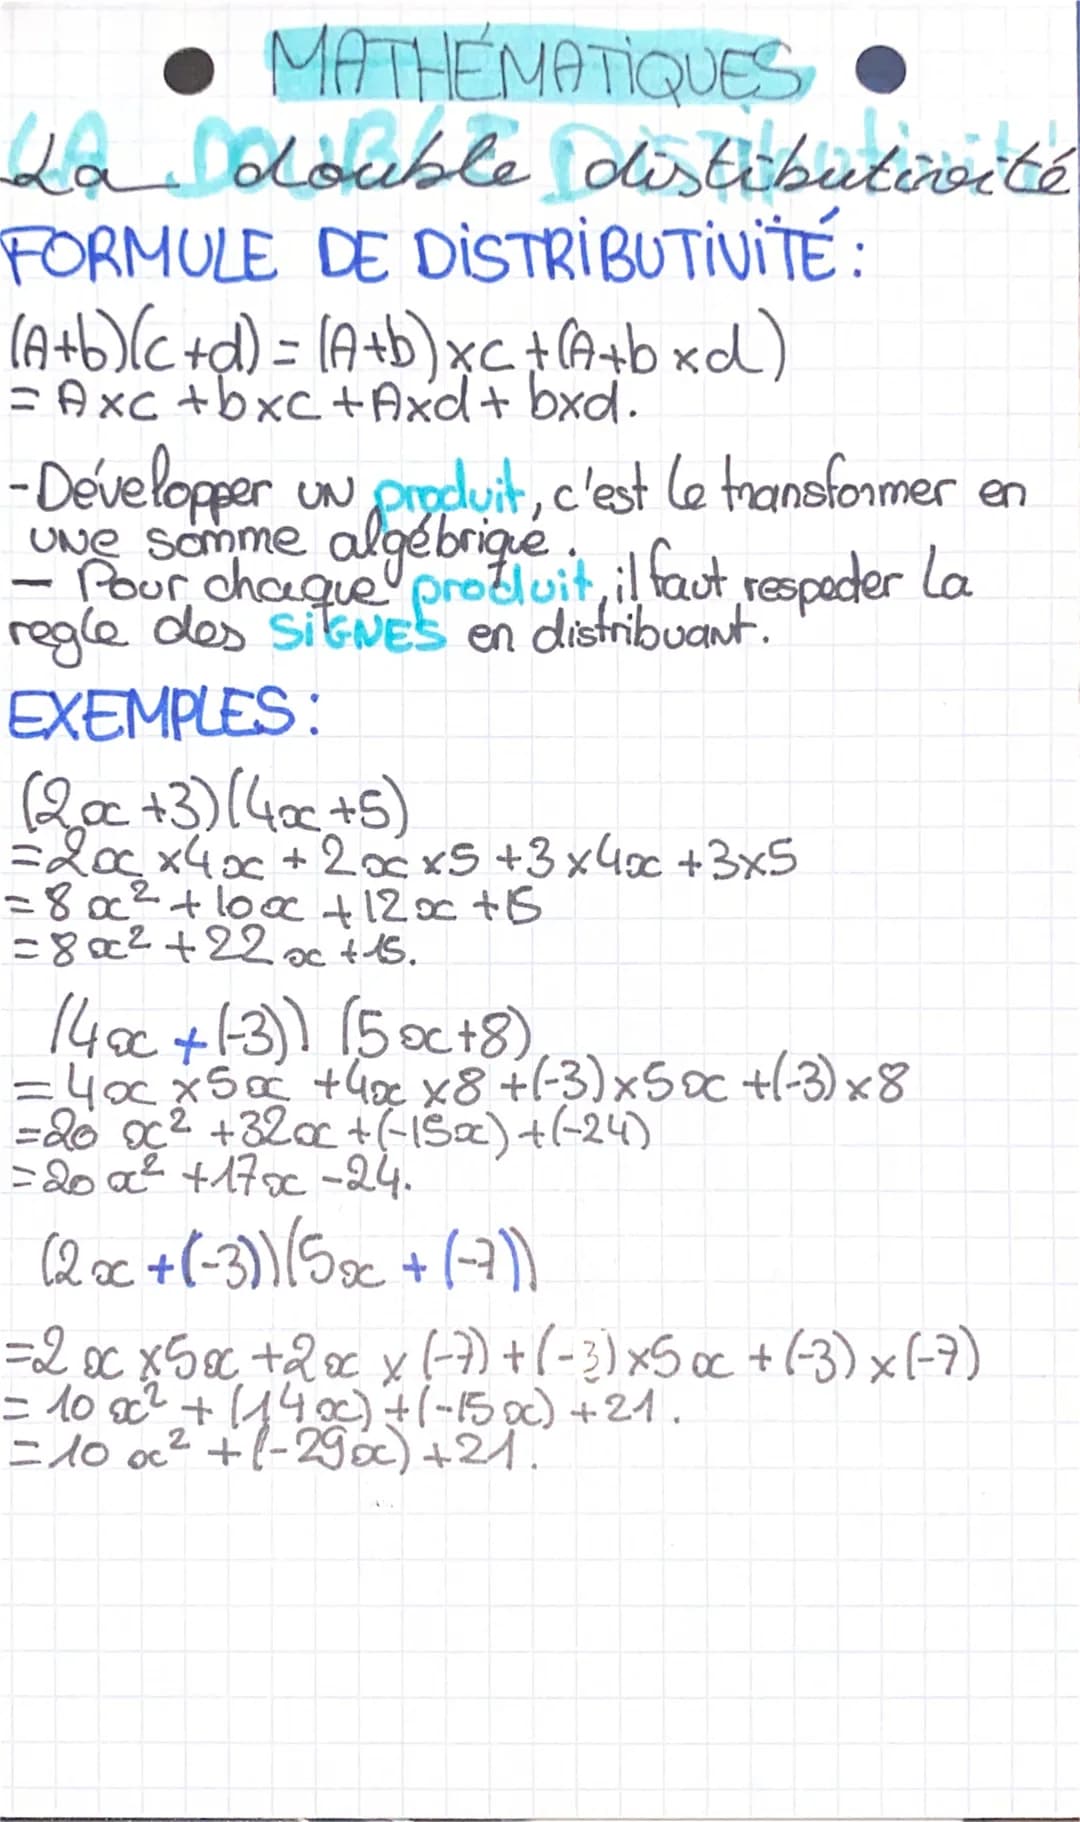 MATHÉMATIQUES
La double distributivité
FORMULE DE DISTRIBUTIVITÉ :
(A+b)(c+d) = (A+b)xc + (A+b xd)
= Axc + bxc + Axd + bxd.
- Développer UN produit, c'est le transformer en
UNe somme algébrique.
- Pour chaque produit, il faut respecter la
regle des SIGNES en distribuant.
EXEMPLES :
(2x +3)(4x +5)
=2x x4x + 2x x5 +3 x4x +3x5
=8x² + 10x +12x +15
=8x² +22x +15.
(4x +(-3)) (5x+8)
=4x x5x +4x x8 +(-3)x5x +(-3)x8
=20 x² +32x +(-15x) +(-24)
=20x² +17x -24.
(2x +(-3))(5x + (-7))
=2x x5x +2x x (-7) +(-3)x5x + (-3) x(-7)
= 10x² + (14x) +(-15x) +21.
=10x² +(-29x) +21.